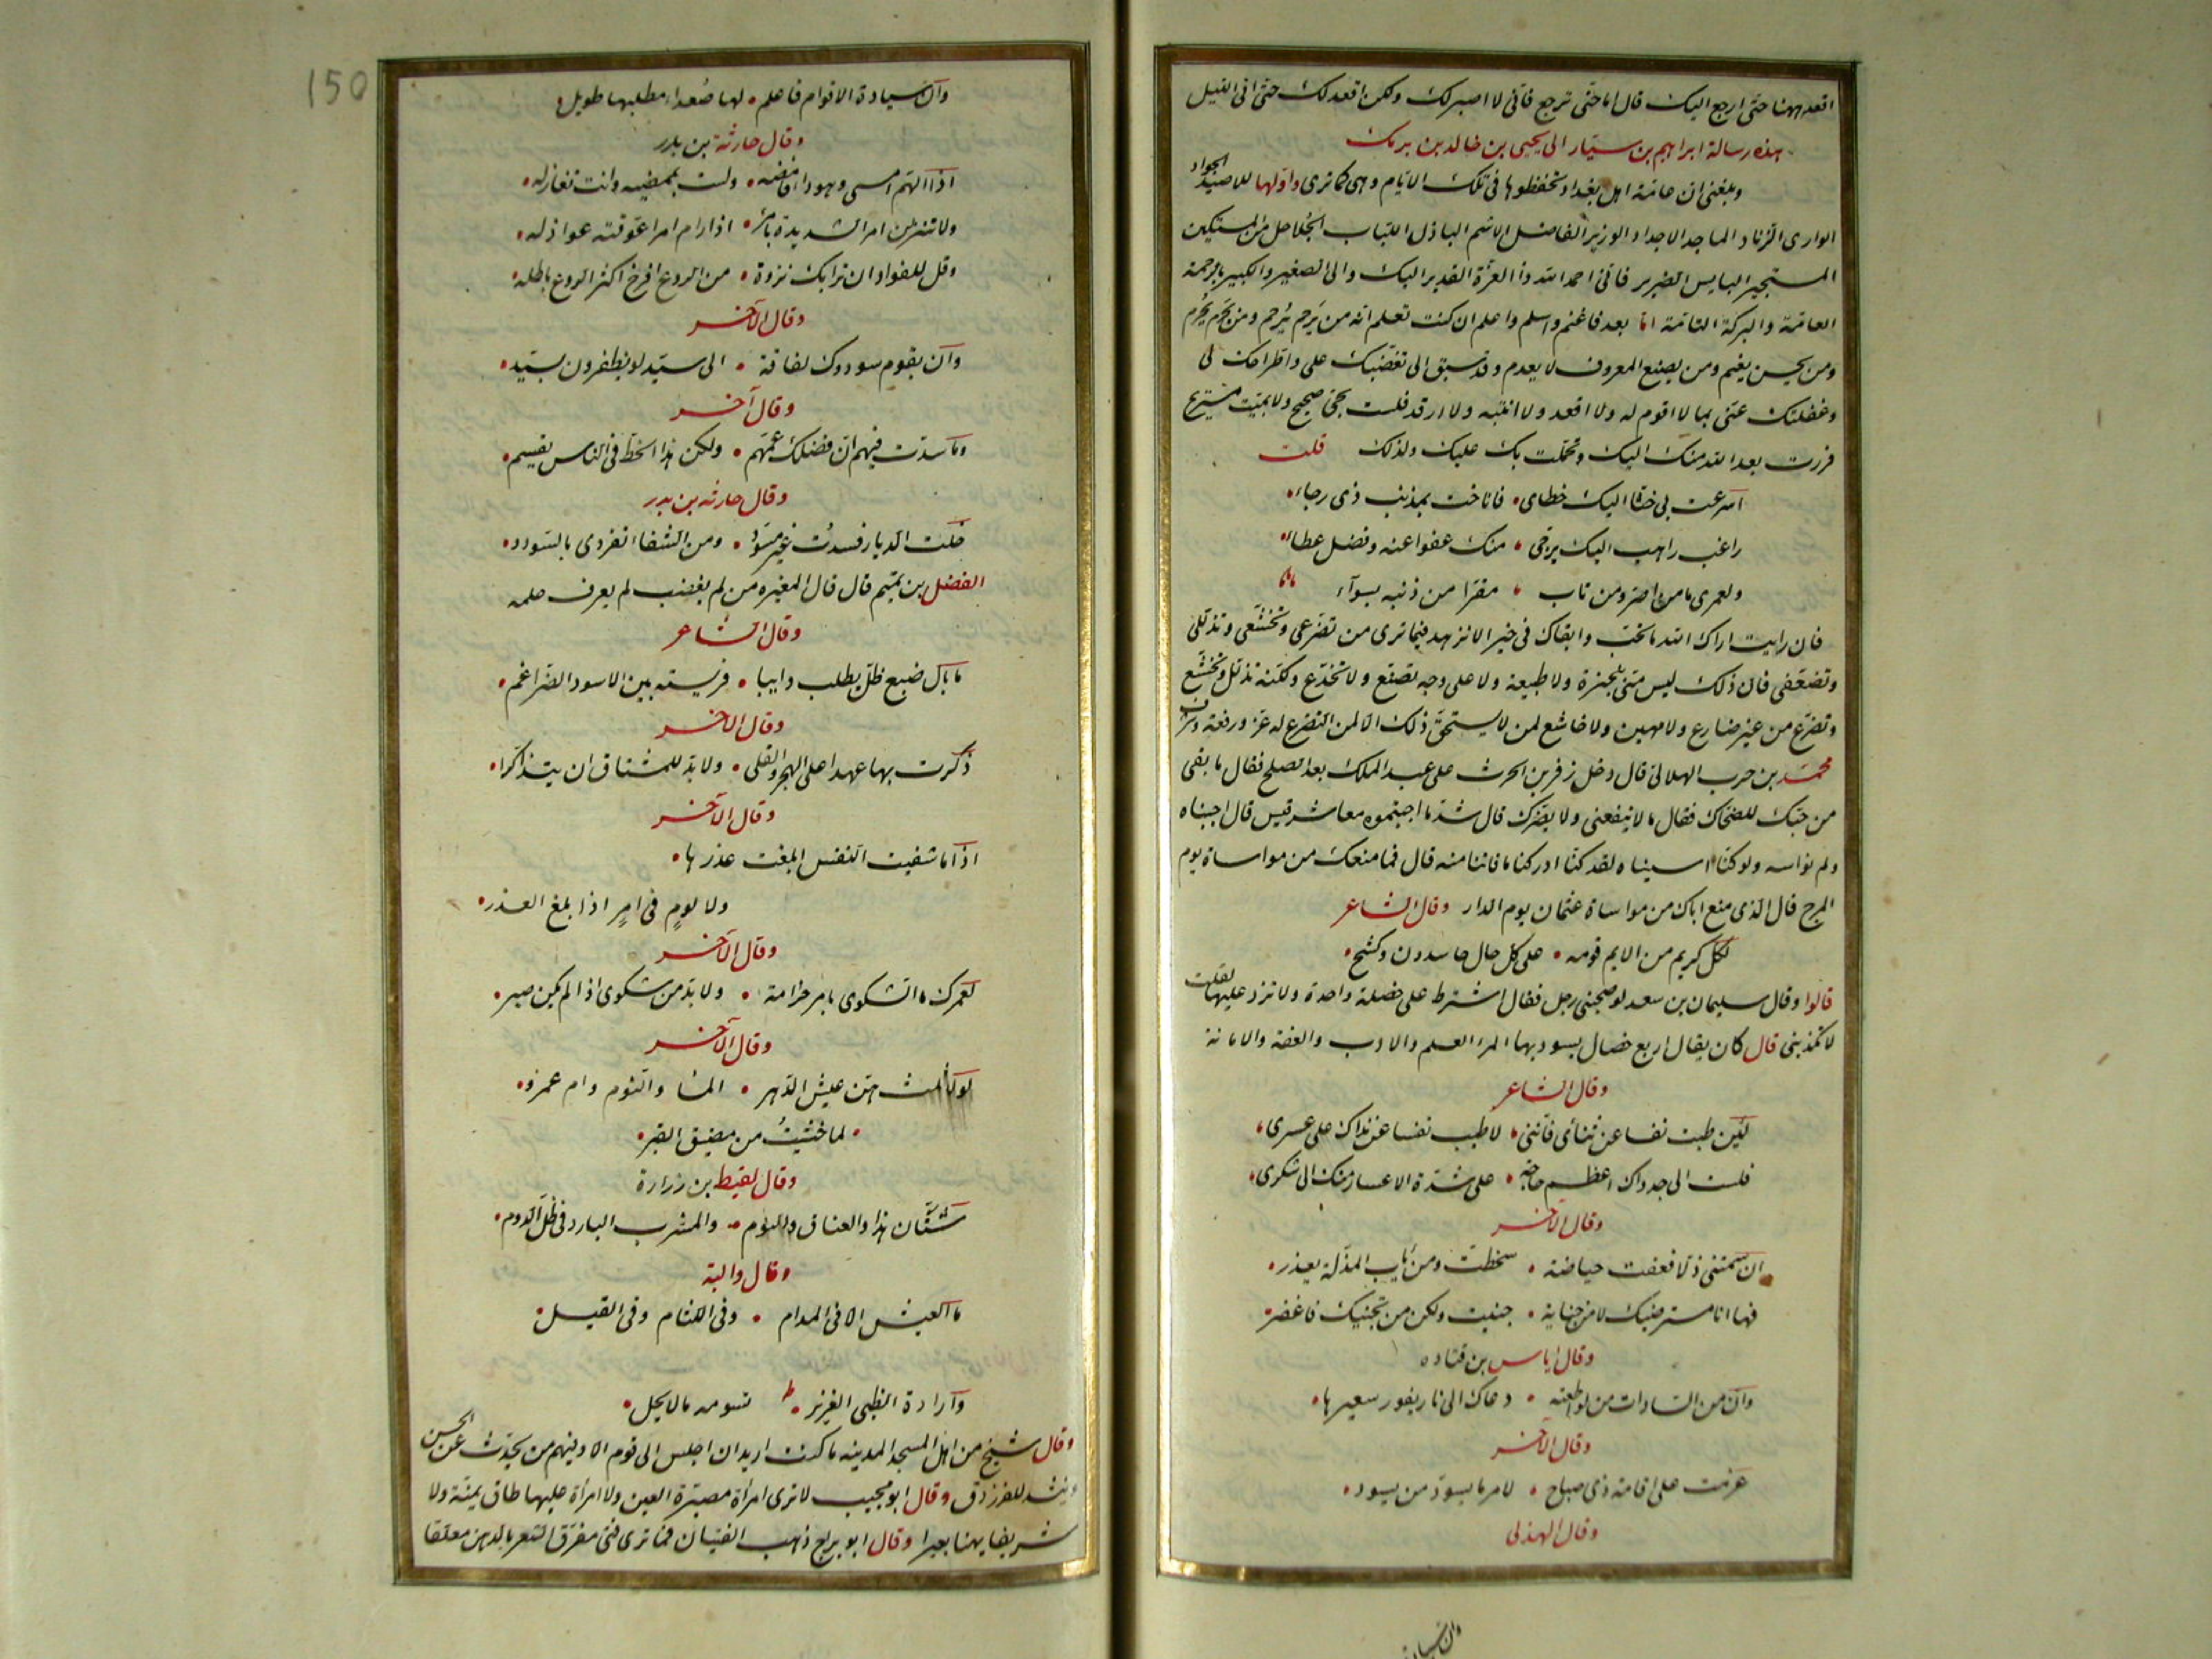 اقعد ههنا حتى ارجع اليك قال اما حتى ترجع فانى لا اصبر لك ولكن اقعد لك حتى اتى الليل
هذه رسالة ابراهيم بن سيار الى يحيى بن خالد بن برمك
وبلغنى ان عامة اهل بغداد تحفظوها فى تلك الايام وهى كما ترى واولها للاصيد الجواد
الوارى الزناد الماجد الاجداد الوزير الفاضل الاشم الباذل اللباب الحلاحل من المستكين
المستجير البايس الضرير فانى احمد الله ذا العزة القدير اليك والى الصغير والكبير بالرحمة
العامة والبركة التامة اما بعد فاغنم واسلم واعلم ان كنت تعلم انه من يرحم يرحم ومن يحرم يحرم
ومن يحسن يغنم ومن يصنع المعروف لا يعدم وقد سبق الى تغضبك على واطراحك لى
وغفلتك عنى بما لا اقوم له ولا اقعد ولا انتبه ولا ارقد فلست بحى صحيح ولا بميت مستريح
فررت بعد الله منك اليك وتحملت بك عليك ولذلك قلت
اسرعت بى حثا اليك خطاى • فاناخت بمذنب ذى رجاء
راغب راهب اليك يرجى • منك عفوا عنه وفضل عطاء
ولعمرى ما من اصر ومن تاب • مقرا من ذنبه بسوآء
فان رايت اراك الله ما تحب وابقاك فى خير الا تزهد فيما ترى من تضرعى وتخشعى وتذللى
وتضعفى فان ذلك ليس منى بنحيزة ولا طبيعة ولا على وجه تصنع ولا تخدع ولكنه تذلل وتخشع
وتضرع من غير ضارع ولا مهين ولا خاشع لمن لا يستحق ذلك الا لمن التضرع له عز ورفعة وشرف
محمد بن حرب الهلالى قال دخل زفر بن الحرث على عبد الملك بعد الصلح فقال ما بقى
من حبك للضحاك فقال ما لا ينفعنى ولا يضرك قال شد ما احببتموه معاشر قيس قال احببناه
ولم نواسه ولو كنا اسيناه لقد كنا ادركنا ما فاتنا منه قال فما منعك من مواساته يوم
المرج قال الذى منع اباك من مواساة عثمان يوم الدار وقال الشاعر
لكل كريم من الايم قومه • على كل حال حاسدون وكشح •
قالوا وقال سليمان بن سعد لو صحبنى رجل فقال اشترط على خصلة واحدة ولا تزد عليها لقلت
لا تكذبنى قال كان يقال اربع خصال يسود بها المرء العلم والادب والعفة والامانة
وقال الشاعر
لئين طبت نفسا عن ثنائى فاننى • لاطيب نفسا عن نداك على عسرى •
فلست الى جدواك اعظم حاجة • على شدة الاعسار منك الى شكرى •
وقال الآخر
ان سمتنى ذلا فعفت حياضه • سخطت ومن ياب المذلة يعذر •
فها انا مسترضيك لا من جناية • جنيت ولكن من تجنيك فاغفر •
وقال اياس بن قتاده
وان من السادات من لو اطعته • دعاك الى نار يفور سعيرها •
وقال الآخر
عزمت على اقامة ذى صباح • لامر ما يسود من يسود •
وقال الهذلى
وان سيادة
150
وان سيادة الاقوام فاعلم • لها صعداء مطلبها طويل
وقال حارثة بن بدر
اذا الهم امسى وهو داء فامضه • ولست بممضيه وانت تغازله •
ولا تنزلن امر الشديدة بامرء • اذا رام امرا عوقته عواذله •
وقل للفواد ان نزا بك نزوة • من الروع افرخ اكثر الروع باطله •
وقال الآخر
وان بقوم سودوك لفاقة • الى سيد لو يظفرون بسيد •
وقال آخر
وما سدت فيهم ان فضلك عمهم • ولكن هذا الحظ فى الناس يقسم •
وقال حارثه بن بدر
خلت الديار فسدت غير مسود • ومن الشقاء تفردى بالسودد •
الفضل بن تميم قال قال المغيره من لم يغضب لم يعرف حلمه
وقال الشاعر
ما بال ضبع ظل يطلب دايبا • فريسته بين الاسود الضراغم •
وقال الآخر
ذكرت بها عهدا على الهجر والقلى • ولا بد للمشتاق ان يتذكرا •
وقال الآخر
اذا ما شفيت النفس ابلغت عذرها •
ولا لوم فى امر اذا بلغ العذر •
وقال الآخر
لعمرك ما الشكوى بامر حزامة • ولا بد من شكوى اذا لم يكن صبر •
وقال الآخر
لو ثلث هن عيش الدهر • الماء والنوم وام عمرو •
• لما خشيت من مضيق القبر •
وقال لقيط بن زرارة
شتان هذا والعناق والنوم • والمشرب البارد فى ظل الدوم •
وقال والبة
ما العيش الا فى المدام • وفى اللثام وفى القبل •
وارادة الظبى الغرير • تسومه ما لا يحل •
وقال شيخ من اهل المسجد المدينه ما كنت اريد ان اجلس الى قوم الا وفيهم من يحدث عن الحسن
وينشد للفرزدق وقال ابو مجيب لا ترى امرأة مصبرة العين ولا امرأة عليها طاق يمنة ولا
شريفا يهنا بعيرا وقال ابو براح ذهب الفتيان فما ترى فتى مفرق الشعر بالدهن معلقا